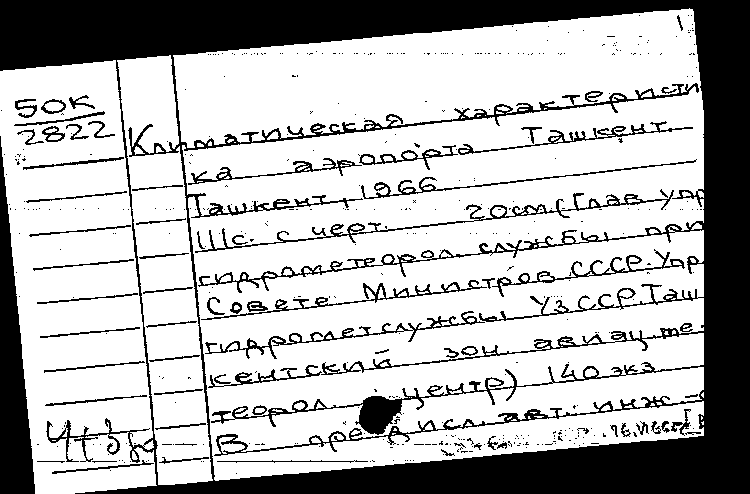 1
50К
2822
Климатическая характеристи
ка аэропорта Ташкент.
Ташкент, 1966
111с. с черт. 20см. (Глав. упр
гидрометеорол. службы при
Совете Министров СССР. Упр.
гидрометслужбы УзССР. Таш
кентский зон. авиац. ме-
теорол. центр) 140 экз.
В предисл. авт.: инж.-